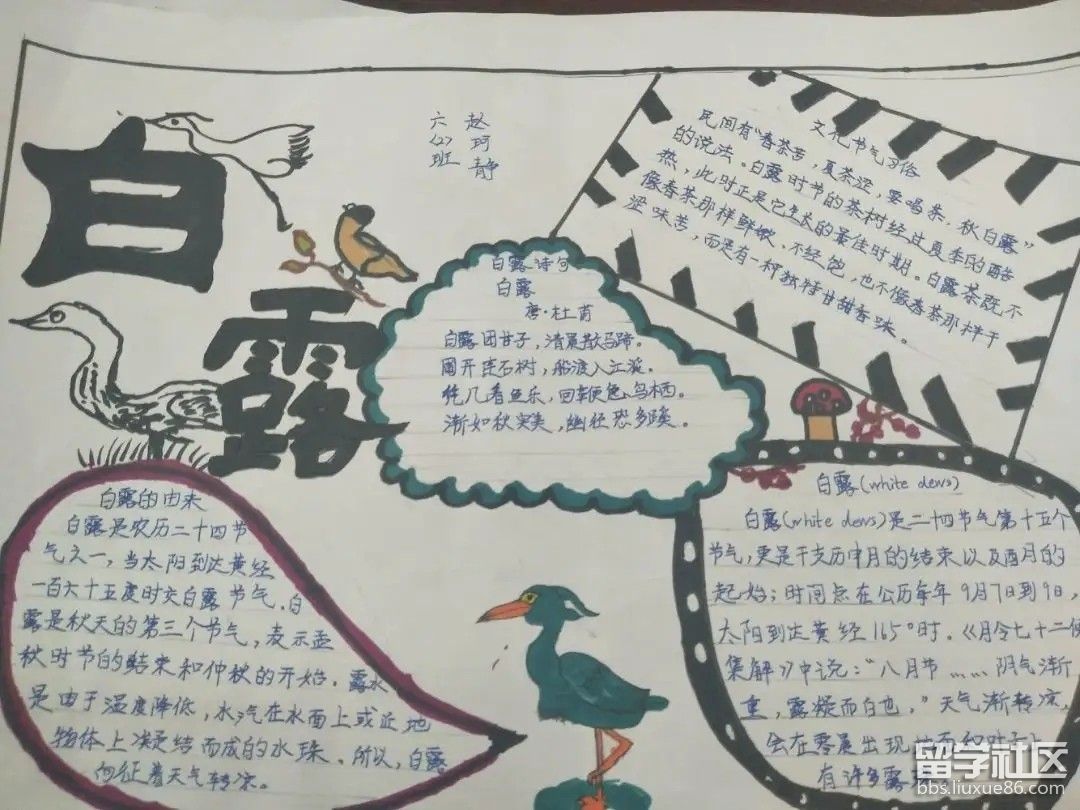 白露
赵珂静
六(2)班
文化节气习俗
民间有“春茶苦,夏茶涩,要喝茶,秋白露”
的说法。白露时节的茶树经过夏季的酷
热,此时正是它生长的最佳时期。白露茶既不
像春茶那样鲜嫩、不经泡,也不像春茶那样干
涩味苦,而是有一种独特甘甜香味。
白露诗句
白露
唐·杜甫
白露团甘子,清晨散马蹄。
圃开连石树,船渡入江溪。
凭几看鱼乐,回鞭急鸟栖。
渐知秋实美,幽径恐多蹊。
白露的由来
白露是农历二十四节
气之一,当太阳到达黄经
一百六十五度时交白露节气。白
露是秋天的第三个节气,表示孟
秋时节的结束和仲秋的开始。露水
是由于温度降低,水汽在水面上或近地
物体上凝结而成的水珠。所以,白露
征着天气转凉。
白露(white dews)
白露(white dews)是二十四节气第十五个
节气,更是干支历申月的结束以及酉月的
起始;时间点在公历每年9月7日到9日,
太阳到达黄经165°时。《月令七十二候
集解》中说:“八月节……阴气渐
重,露凝而白也,”天气渐转凉,
会在零晨出现地面和叶子上
有许多露
留学社区
bbs.liuxue86.com